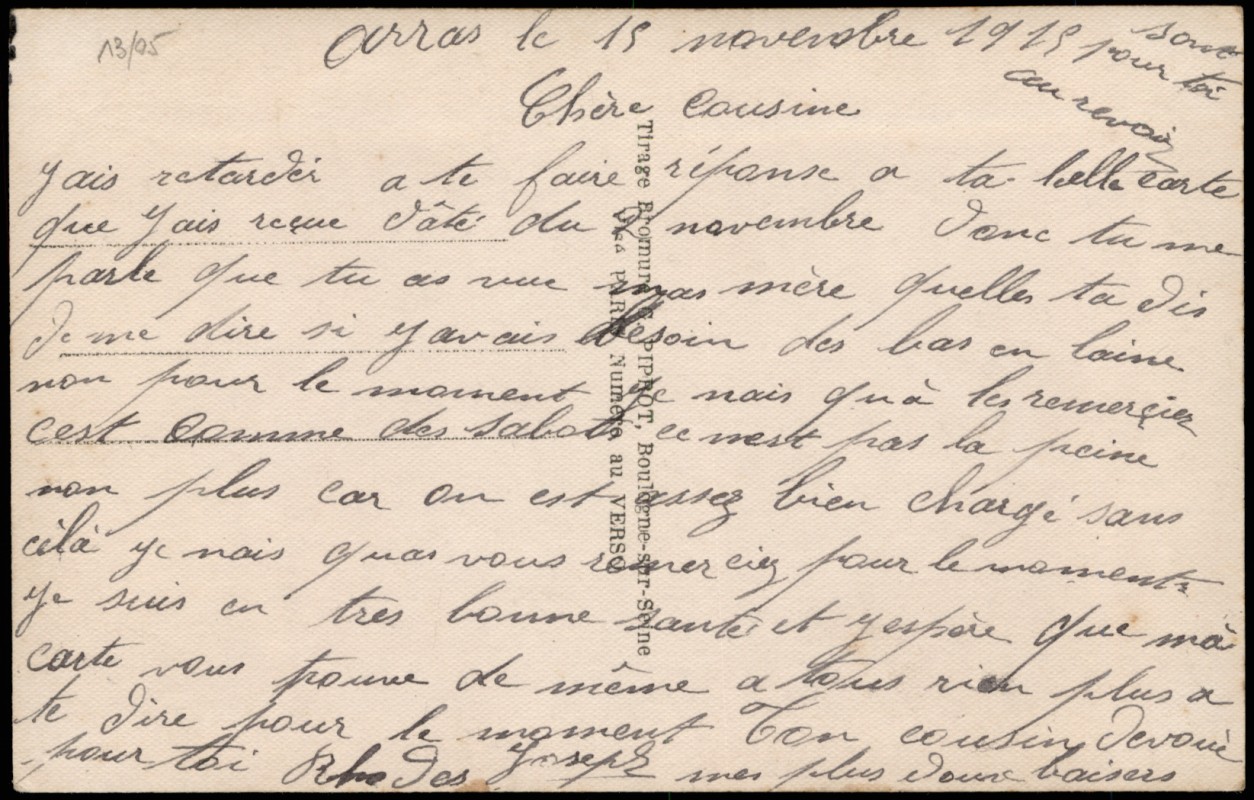 13/05
Arras le 15 novembre 1915
Chère Cousine
Jais retarder a te faire réponse a ta belle carte
que Jais reçue dâté du 2 novembre donc tu me
parle que tu as vue mas mère quelles ta dis
de me dire si yavais besoin des bas en laine
non pour le moment ye nais quà les remerçier
cest comme des sabots ce nest pas la peine
non plus car on est assez bien chargé sans
cèlà ye nais quas vous remerciez pour le moment
ye suis en tres bonne santé et yespére que mà
carte vous trouve de même a tous rien plus a
te dire pour le moment Ton cousin devoué
pour toi Rhodes Joseph mes plus doux baisers
sont
pour toi
au revoir
Tirage Bromure PIPROT, Boulogne-sur-Seine
Visé PARIS Numéro au VERSO